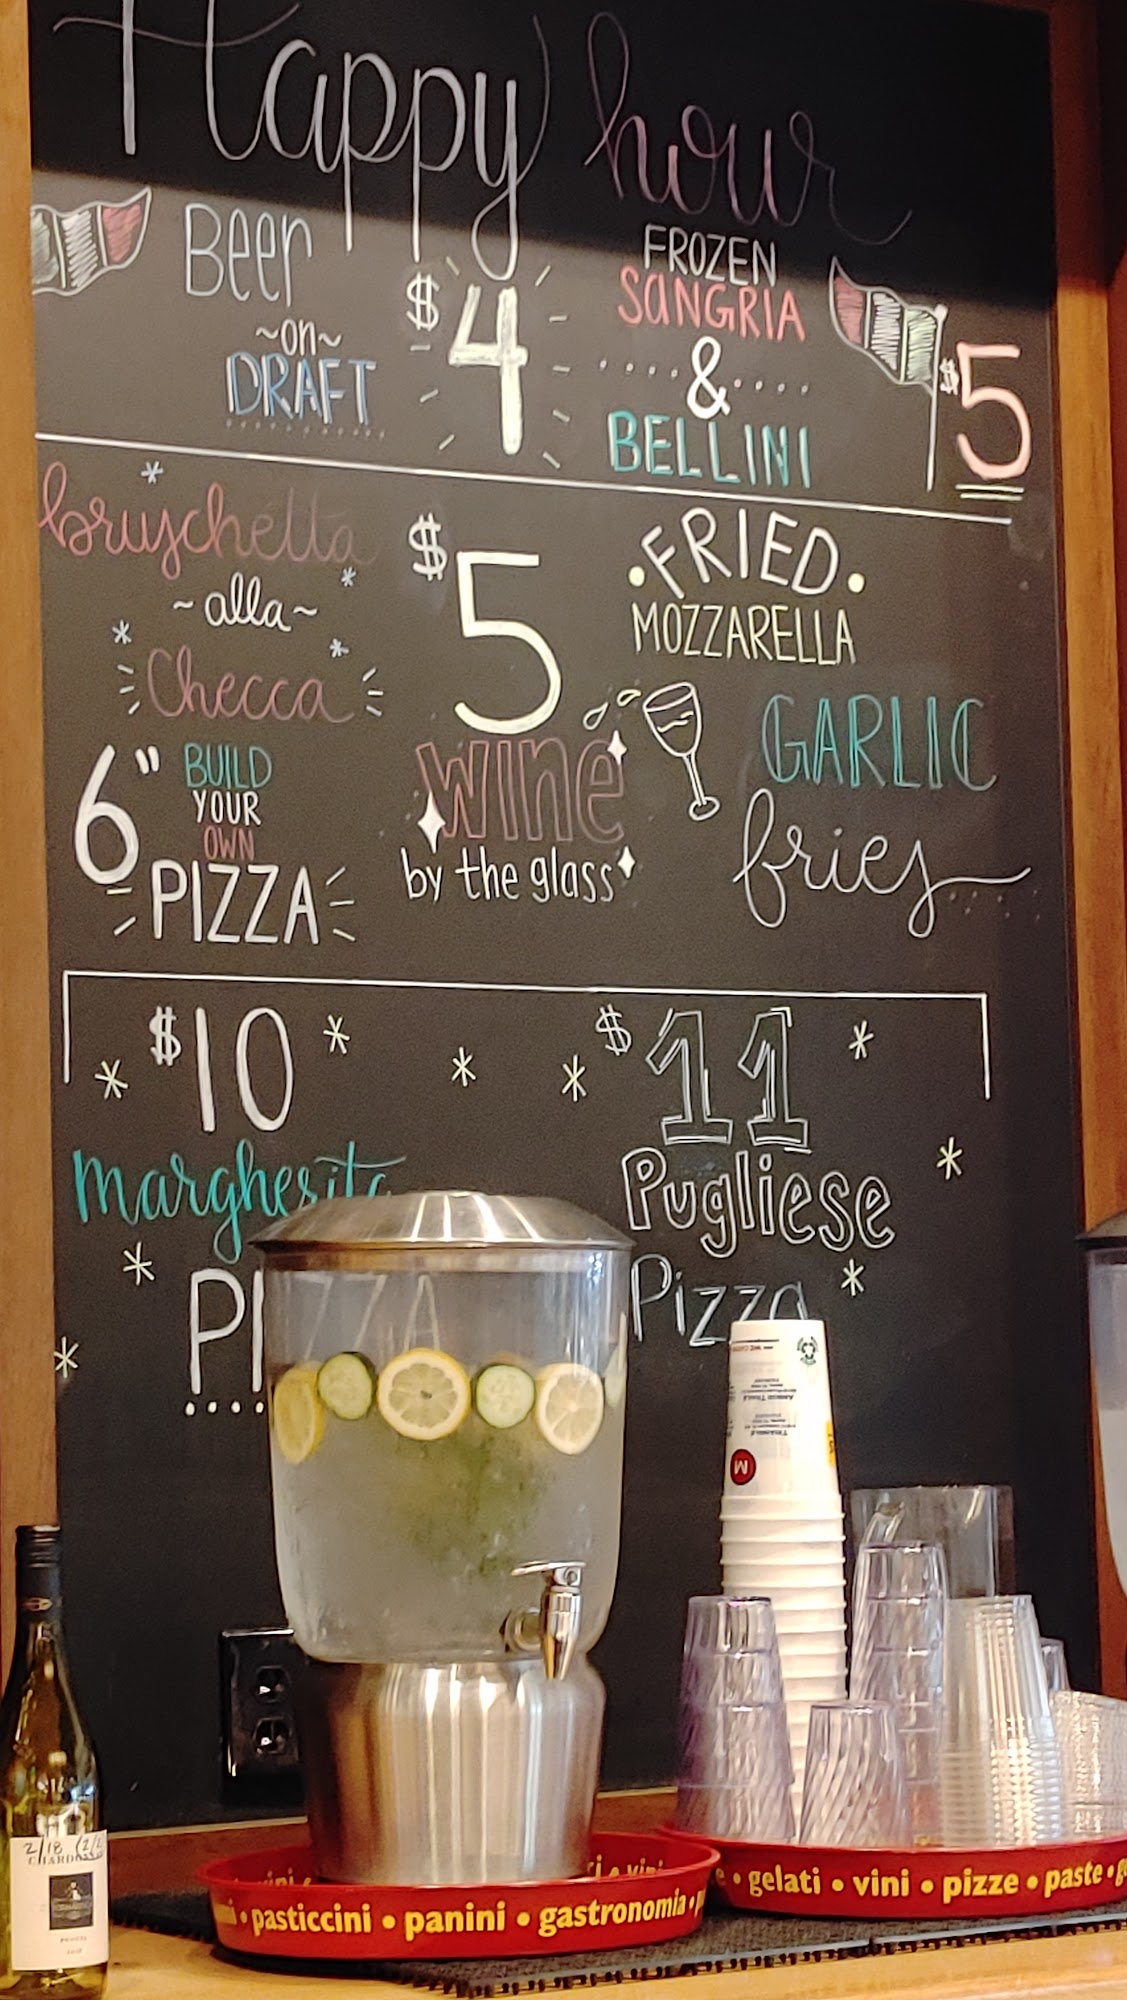 Happy hour
Beer
~on~
DRAFT
$4
FROZEN
SANGRIA
&
BELLINI
$5
bruschetta
~alla~
Checca
$5
wine
by the glass
FRIED
MOZZARELLA
GARLIC
fries
6"
BUILD
YOUR
OWN
PIZZA
$10
margherita
PIZZA
$11
Pugliese
Pizza
M
2/18
pasticcini • panini • gastronomia •
• gelati • vini • pizze • paste •